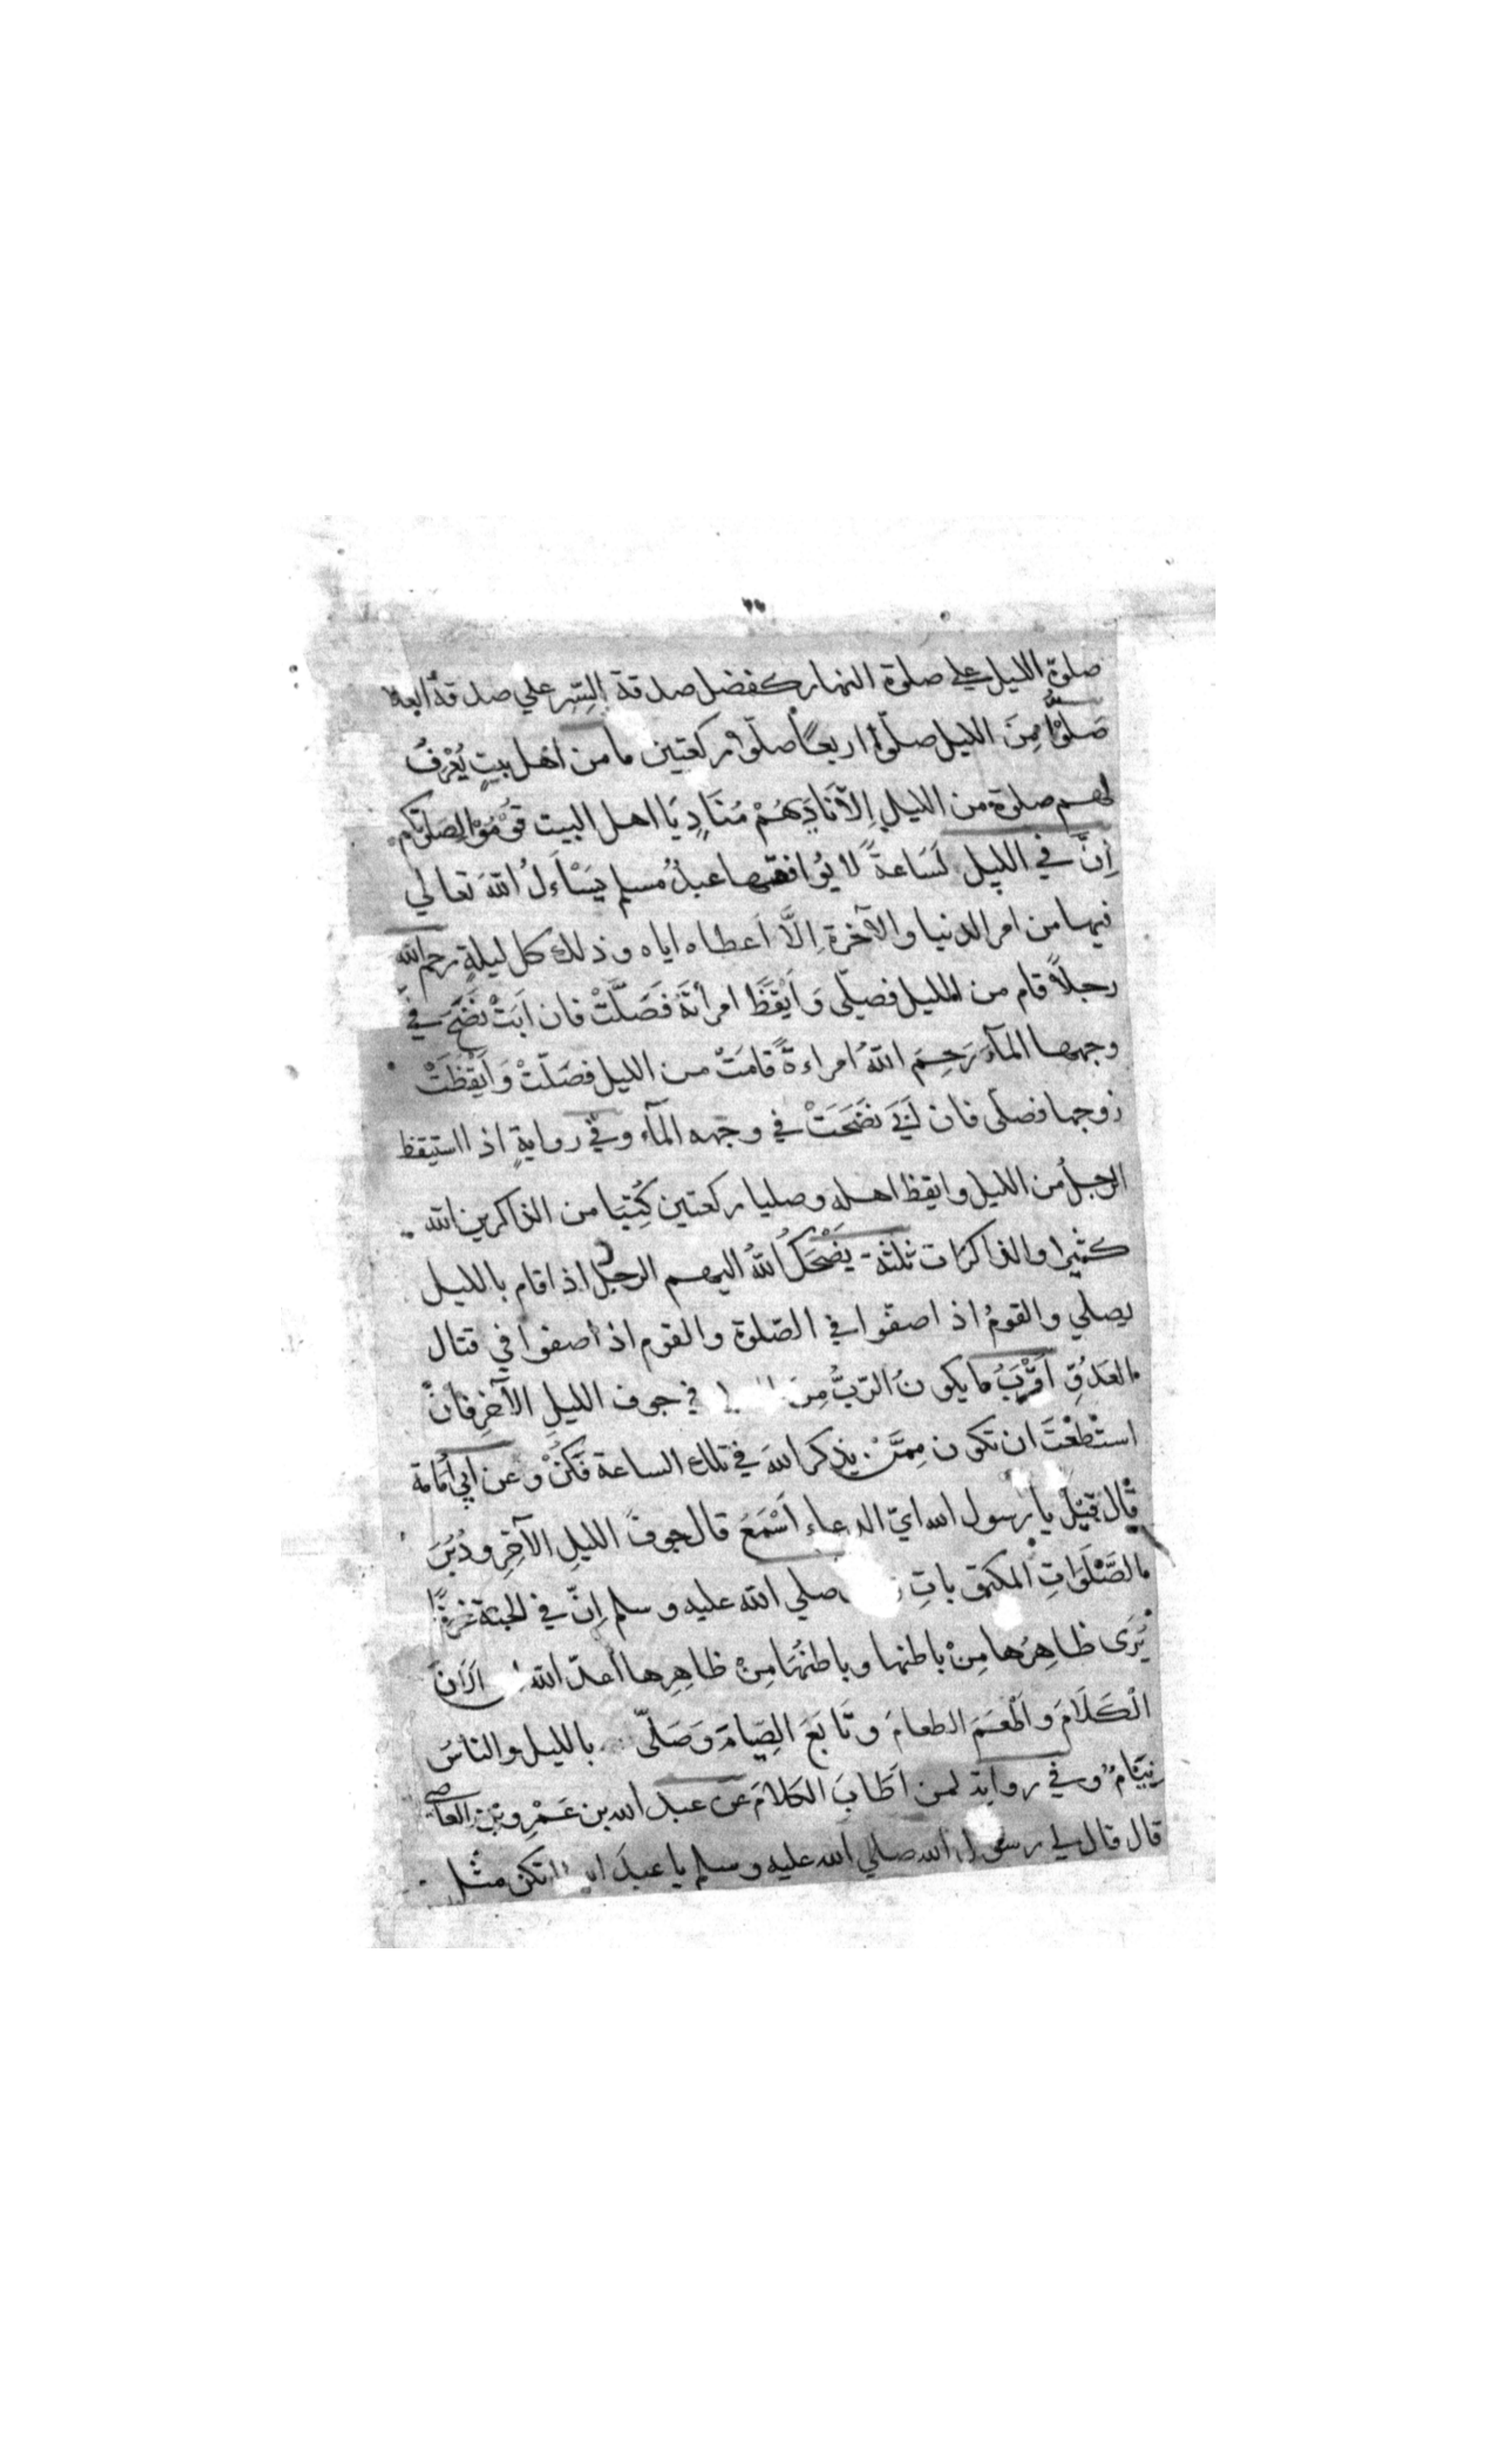 صلوة الليل علي صلوة النهار كفضل صدقة السِّر علي صدقة العلا
صَلُّوْا مِنَ الليل صلّوا اربعًا صلّوا ركعتين ما من اهل بيتٍ يُعْرفُ
لهم صلوة من الليلِ اِلّا نَادَيهُمْ مُنَادٍ يَا اهل البيت قُوْمُوْا لِصَلوتِكم
اِنَّ في الليل لَسَاعةً لا يُوافقها عبدٌ مُسلِم يَسْاَلُ اللّٰهَ تعالي
فيها من امر الدنيا والآخرة اِلَّا اَعطاه اياه وذلك كل ليلةٍ رحم الله
رجلاً قام من الليل فصلّى وَاَيْقَظَ امرأتَهُ فَصَلَّتْ فان اَبَتْ نَضَحَ في
وجهها المآءَ رَحِمَ اللّٰهُ امراءةً قامَتْ من الليل فصَلَّتْ وَاَيْقَظَتْ
زوجها فصلّى فان اَبَي نَضَحَتْ في وجهه المآء وفي روايةٍ اذا استيقظ
الرجلُ من الليل وايقظ اهله وصليا ركعتين كُتِبَا من الذاكرين الله
كثيرا والذاكرَات ثلثة يَضْحَكُ اللّٰهُ اليهم الرجل اذا قام بالليل
يصلي والقومُ اذا صفّوا في الصّلوة والقوم اذا صفوا في قتال
العَدُوِّ اَقْرَبُ ما يكونُ الرّبُّ مِنَ في جوف الليلِ الآخِرِ فَاِنِ
استَطعْتَ ان تكون مِمَّنْ يذكر اللّٰهَ في تلك الساعة فَكُنْ وعن ابي اُمَامَة
قال قِيْلَ يا رسول الله ايّ الدعاءِ اَسْمَعُ قال جوفُ الليلِ الآخِرِ ودُبُرَ
الصَّلَوَاتِ المكتوباتِ صلي الله عليه وسلم اِنَّ في الجنّة غرفًا
يُرَى ظاهِرُها مِنْ باطنها وباطنُهَا مِنْ ظاهِرِها اَعدّ الله اَلَانَ
الْكَلَامَ وَاَطْعَمَ الطعامَ وتَابَعَ الصِّيَامَ وَصَلّى بالليل والناسُ
نِيَامٌ وفي رواية لمن اَطَابَ الكلامَ عن عبد الله بن عَمْرِو بْنِ العاص
قال قال لي رسول الله صلي الله عليه وسلم يا عبدَ الله لا تكن مثل